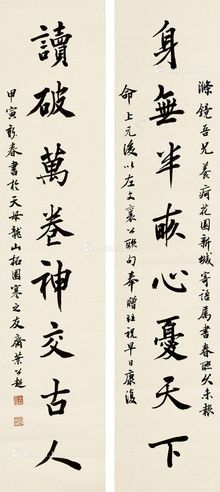 身無半畝心憂天下
滌鏡吾兄養疴花園新城寄語屬書春联久未報
命上元後以左文襄公联句奉贈並祝早日康復
讀破萬卷神交古人
甲寅新春書於天母龍山拓園寒之友齋葉公超